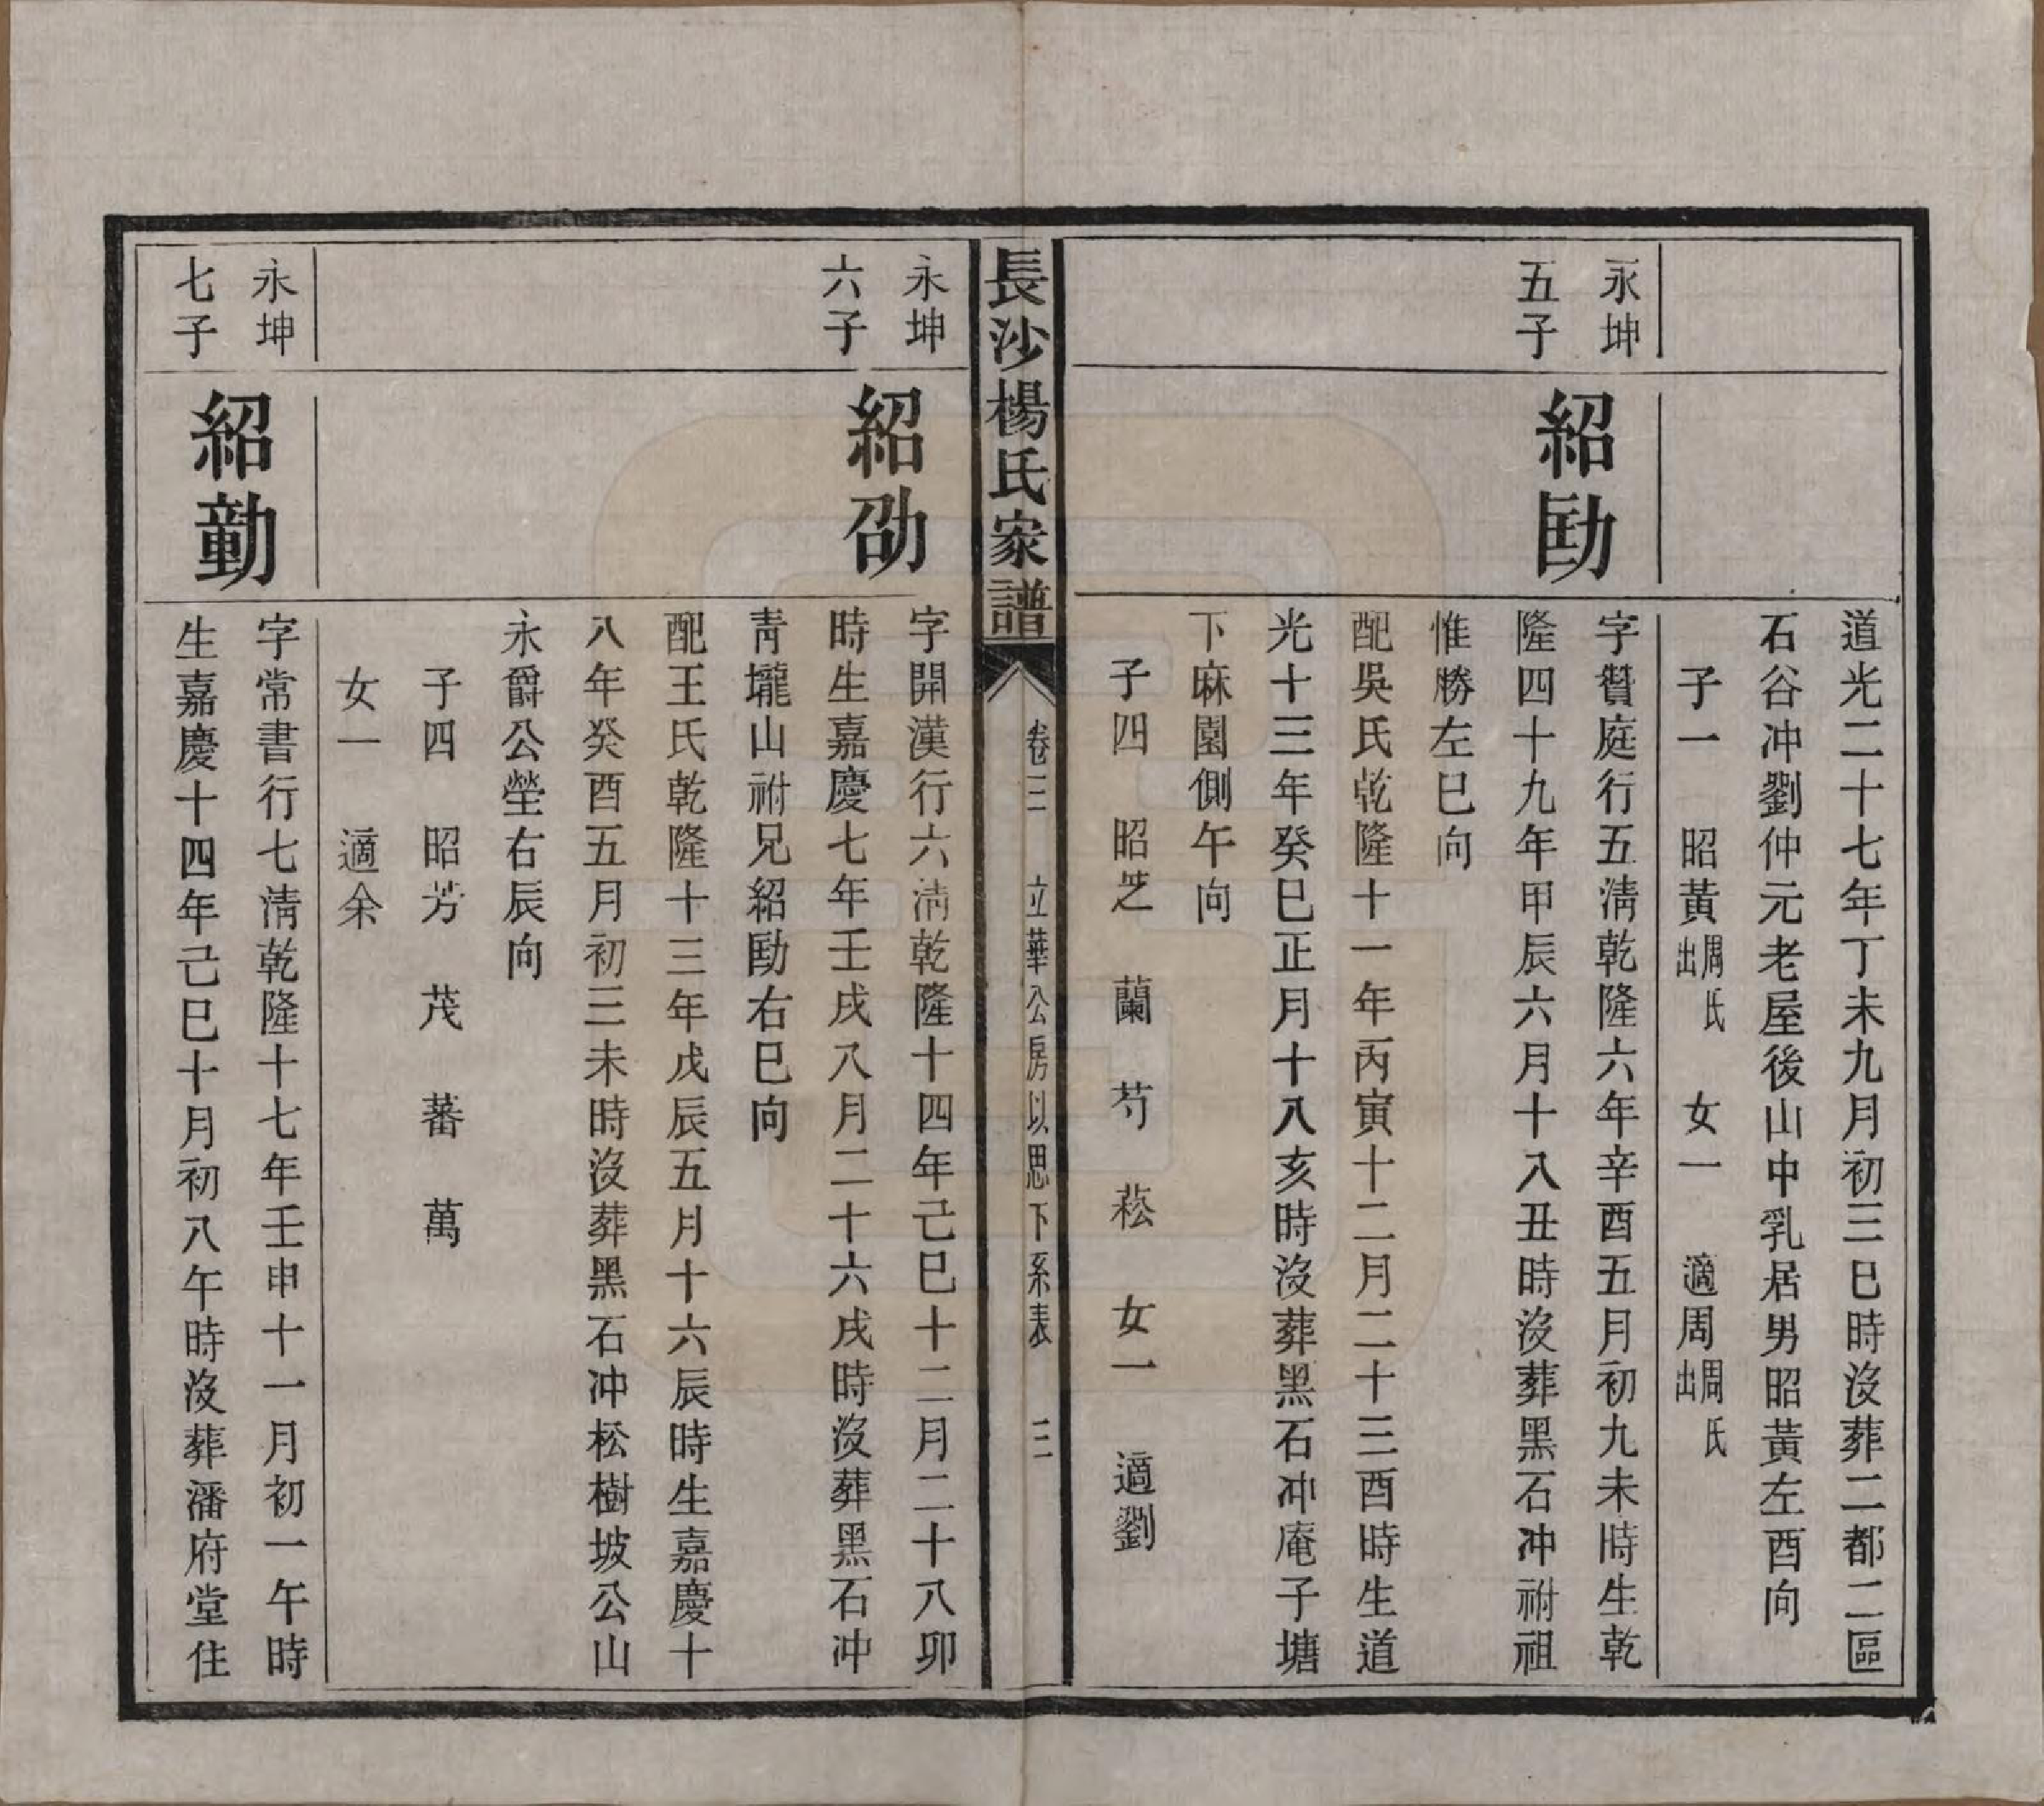 道光二十七年丁未九月初三巳時沒葬二都二區
石谷冲劉仲元老屋後山中乳居男昭黃左酉向
子一　昭黃周氏出　女一　適周周氏出
永坤
五子
紹勛
字贊庭行五淸乾隆六年辛酉五月初九未時生乾
隆四十九年甲辰六月十八丑時沒葬黑石冲祔祖
惟勝左巳向
配吳氏乾隆十一年丙寅十二月二十三酉時生道
光十三年癸巳正月十八亥時沒葬黑石冲庵子塘
下麻園側午向
子四　昭芝　蘭　芍　菘　女一　適劉
長沙楊氏家譜　卷三　立華公房以思下系表　三
永坤
六子
紹劭
字開漢行六淸乾隆十四年己巳十二月二十八卯
時生嘉慶七年壬戌八月二十六戌時沒葬黑石冲
靑壠山祔兄紹勛右巳向
配王氏乾隆十三年戊辰五月十六辰時生嘉慶十
八年癸酉五月初三未時沒葬黑石冲松樹坡公山
永爵公塋右辰向
子四　昭芳　茂　蕃　萬
女一　適余
永坤
七子
紹勤
字常書行七淸乾隆十七年壬申十一月初一午時
生嘉慶十四年己巳十月初八午時沒葬潘府堂住